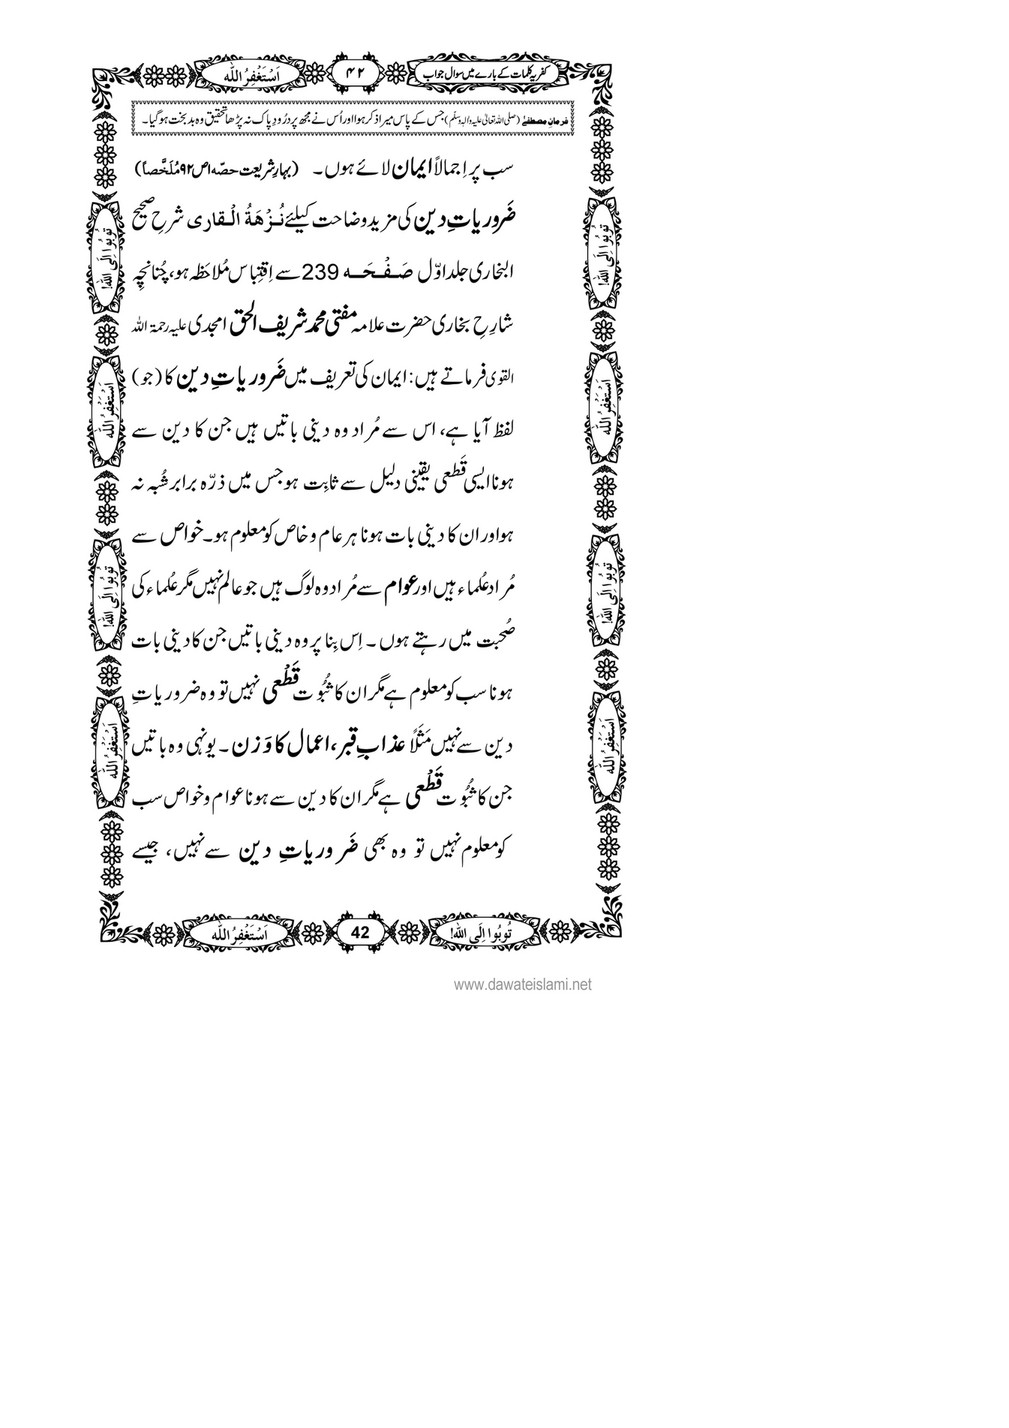 کفریہ کلمات کے بارے میں سوال جواب
۴۲
اَسْتَغْفِرُ اللّٰه
فرمانِ مصطفےٰ (صلی اللہ تعالیٰ علیہ والہ وسلم) جس کے پاس میرا ذکر ہوا اور اُس نے مجھ پر دُرُودِ پاک نہ پڑھا تحقیق وہ بد بخت ہو گیا۔
سب پر اِجمالاً ایمان لائے ہوں۔ (بہارِ شریعت حصّہ ا ص ۹۲ مُلَخَّصاً)
ضَروریاتِ دین کی مزید وضاحت کیلئے نُـزْهَةُ الْـقاری شرحِ صحیح
البخاری جلد اوّل صَـفْـحَـه 239 سے اِقتِباس مُلاحَظہ ہو، چُنانچِہ
شارِحِ بخاری حضرت علامہ مفتی محمد شریف الحق امجدی علیہ رحمۃ اللہ
القوی فرماتے ہیں: ایمان کی تعریف میں ضَروریاتِ دین کا (جو)
لفظ آیا ہے، اس سے مُراد وہ دینی باتیں ہیں جن کا دین سے
ہونا ایسی قَطعی یقینی دلیل سے ثابِت ہو جس میں ذرّہ برابر شُبہ نہ
ہو اور ان کا دینی بات ہونا ہر عام و خاص کو معلوم ہو۔ خواص سے
مُراد عُلماء ہیں اور عوام سے مُراد وہ لوگ ہیں جو عالم نہیں مگر عُلماء کی
صُحبت میں رہتے ہوں۔ اِس بِنا پر وہ دینی باتیں جن کا دینی بات
ہونا سب کو معلوم ہے مگر ان کا ثُبُوت قَطْعی نہیں تو وہ ضروریاتِ
دین سے نہیں مَثَلاً عذابِ قبر، اعمال کا وَزن۔ یونہی وہ باتیں
جن کا ثُبُوت قَطْعی ہے مگر ان کا دین سے ہونا عوام و خواص سب
کو معلوم نہیں تو وہ بھی ضَروریاتِ دین سے نہیں، جیسے
تُوبُوا اِلَی اللّٰه!
اَسْتَغْفِرُ اللّٰه
تُوبُوا اِلَی اللّٰه!
اَسْتَغْفِرُ اللّٰه
تُوبُوا اِلَی اللّٰه!
اَسْتَغْفِرُ اللّٰه
تُوبُوا اِلَی اللّٰه!
اَسْتَغْفِرُ اللّٰه
تُوبُوا اِلَی اللّٰه!
42
اَسْتَغْفِرُ اللّٰه
www.dawateislami.net